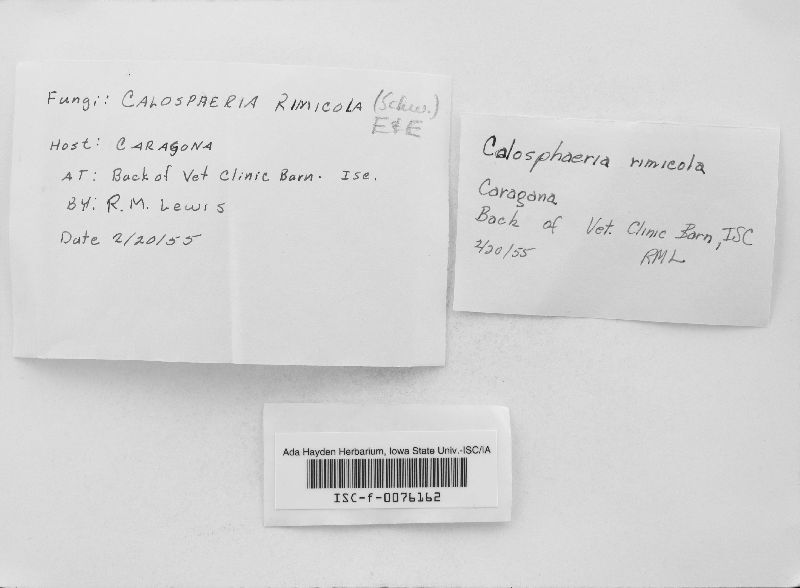 Fungi: CALOSPAERIA RIMICOLA (Schw.)
E&E
Host: CARAGONA
AT: Back of Vet Clinic Barn. Isc.
BY: R.M. Lewis
Date 2/20/55
Calosphaeria rimicola
Caragana
Back of Vet. Clinic Barn, ISC
2/20/55 RML
Ada Hayden Herbarium, Iowa State Univ.-ISC/IA
ISC-f-0076162